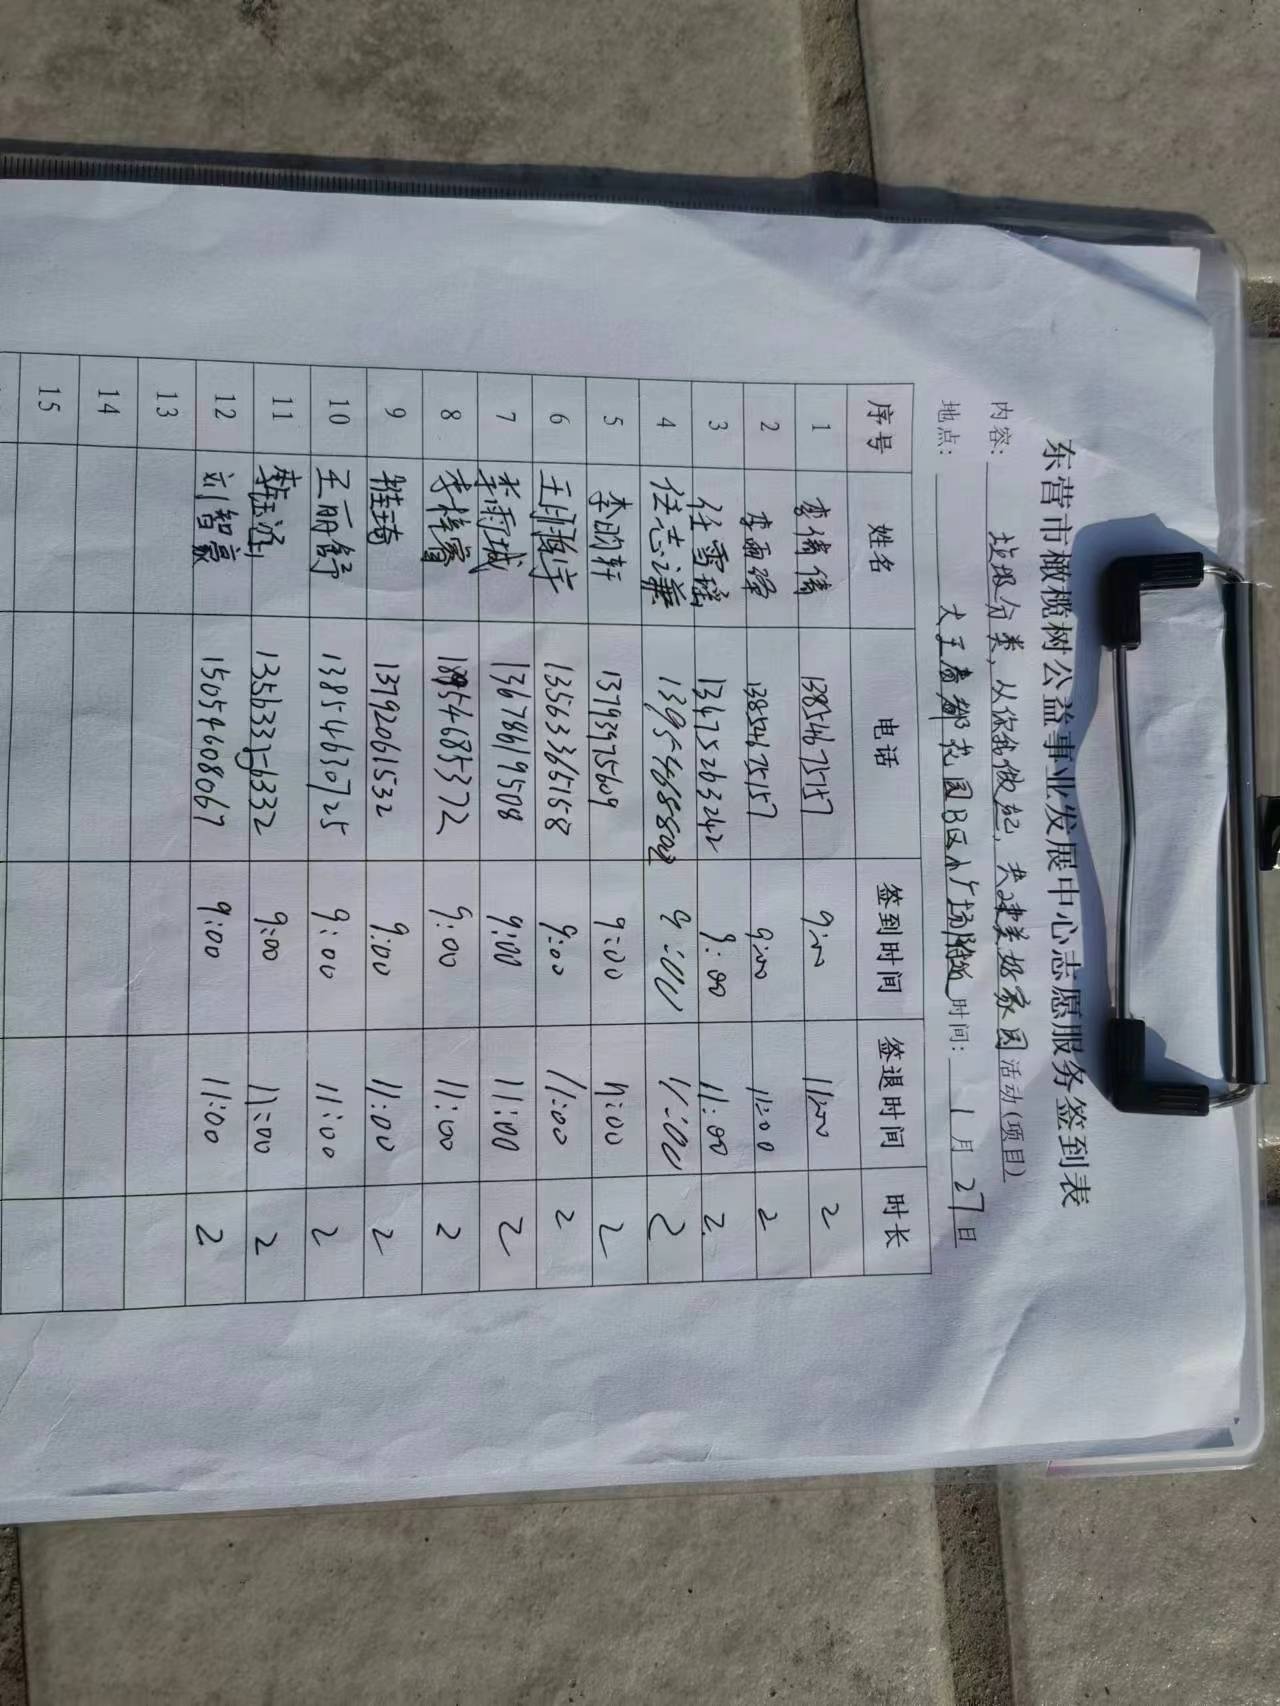 东营市橄榄树公益事业发展中心志愿服务签到表
内容: 垃圾分类,从你我做起,共建美好家园 活动(项目)
地点: 大王尚都花园B区小广场附近 时间: 1月27日
序号 姓名 电话 签到时间 签退时间 时长
1 李倩倩 13854675157 9:00 11:00 2
2 李雨泽 13854675157 9:00 11:00 2
3 任雪瑶 13675263242 9:00 11:00 2
4 任志谦 9:00 11:00 2
5 李昀轩 13793975609 9:00 11:00 2
6 王翔宇 13563365158 9:00 11:00 2
7 李雨城 13678619508 9:00 11:00 2
8 李梓睿 18954685372 9:00 11:00 2
9 13792061532 9:00 11:00 2
10 王丽舒 13854630725 9:00 11:00 2
11 13563356332 9:00 11:00 2
12 刘智豪 15054608067 9:00 11:00 2
13
14
15